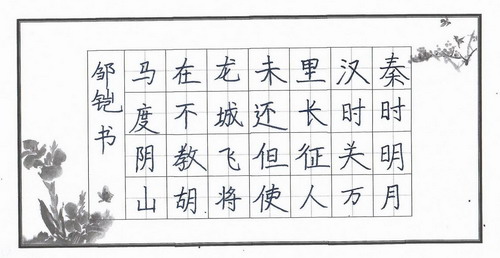 秦时明月
汉时关万
里长征人
未还但使
龙城飞将
在不教胡
马度阴山
邹铠书